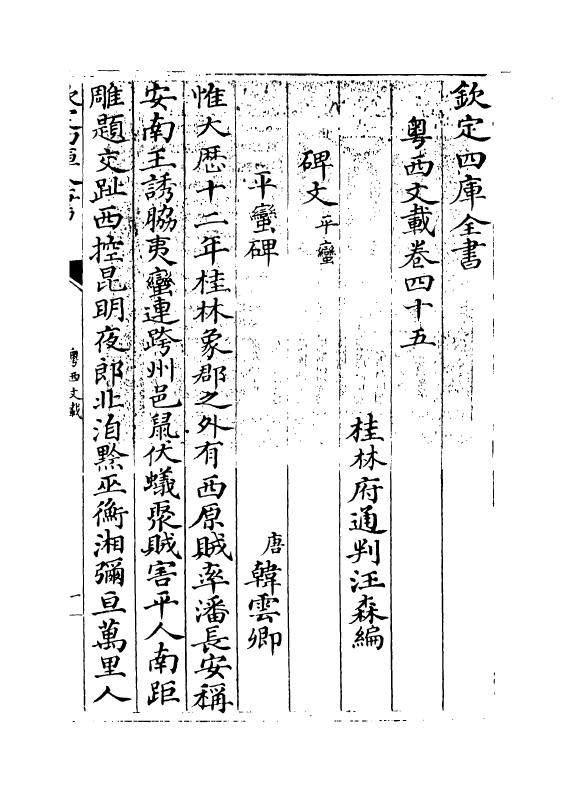 欽定四庫全書
粵西文載卷四十五
桂林府通判汪森編
碑文平蠻
平蠻碑 唐韓雲卿
惟大歴十二年桂林象郡之外有西原賊率潘長安稱
安南王誘脇夷蠻連跨州邑鼠伏蟻聚賊害平人南距
雕題交趾西控昆明夜郎北洎黔巫衡湘彌亘萬里人
粵西文載
一